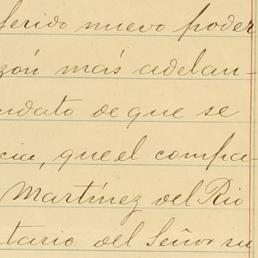 ferido nuevo poder
zón más adelan-
ndato de que se
cia, que el compa-
Martínez del Rio
tario del Señor su